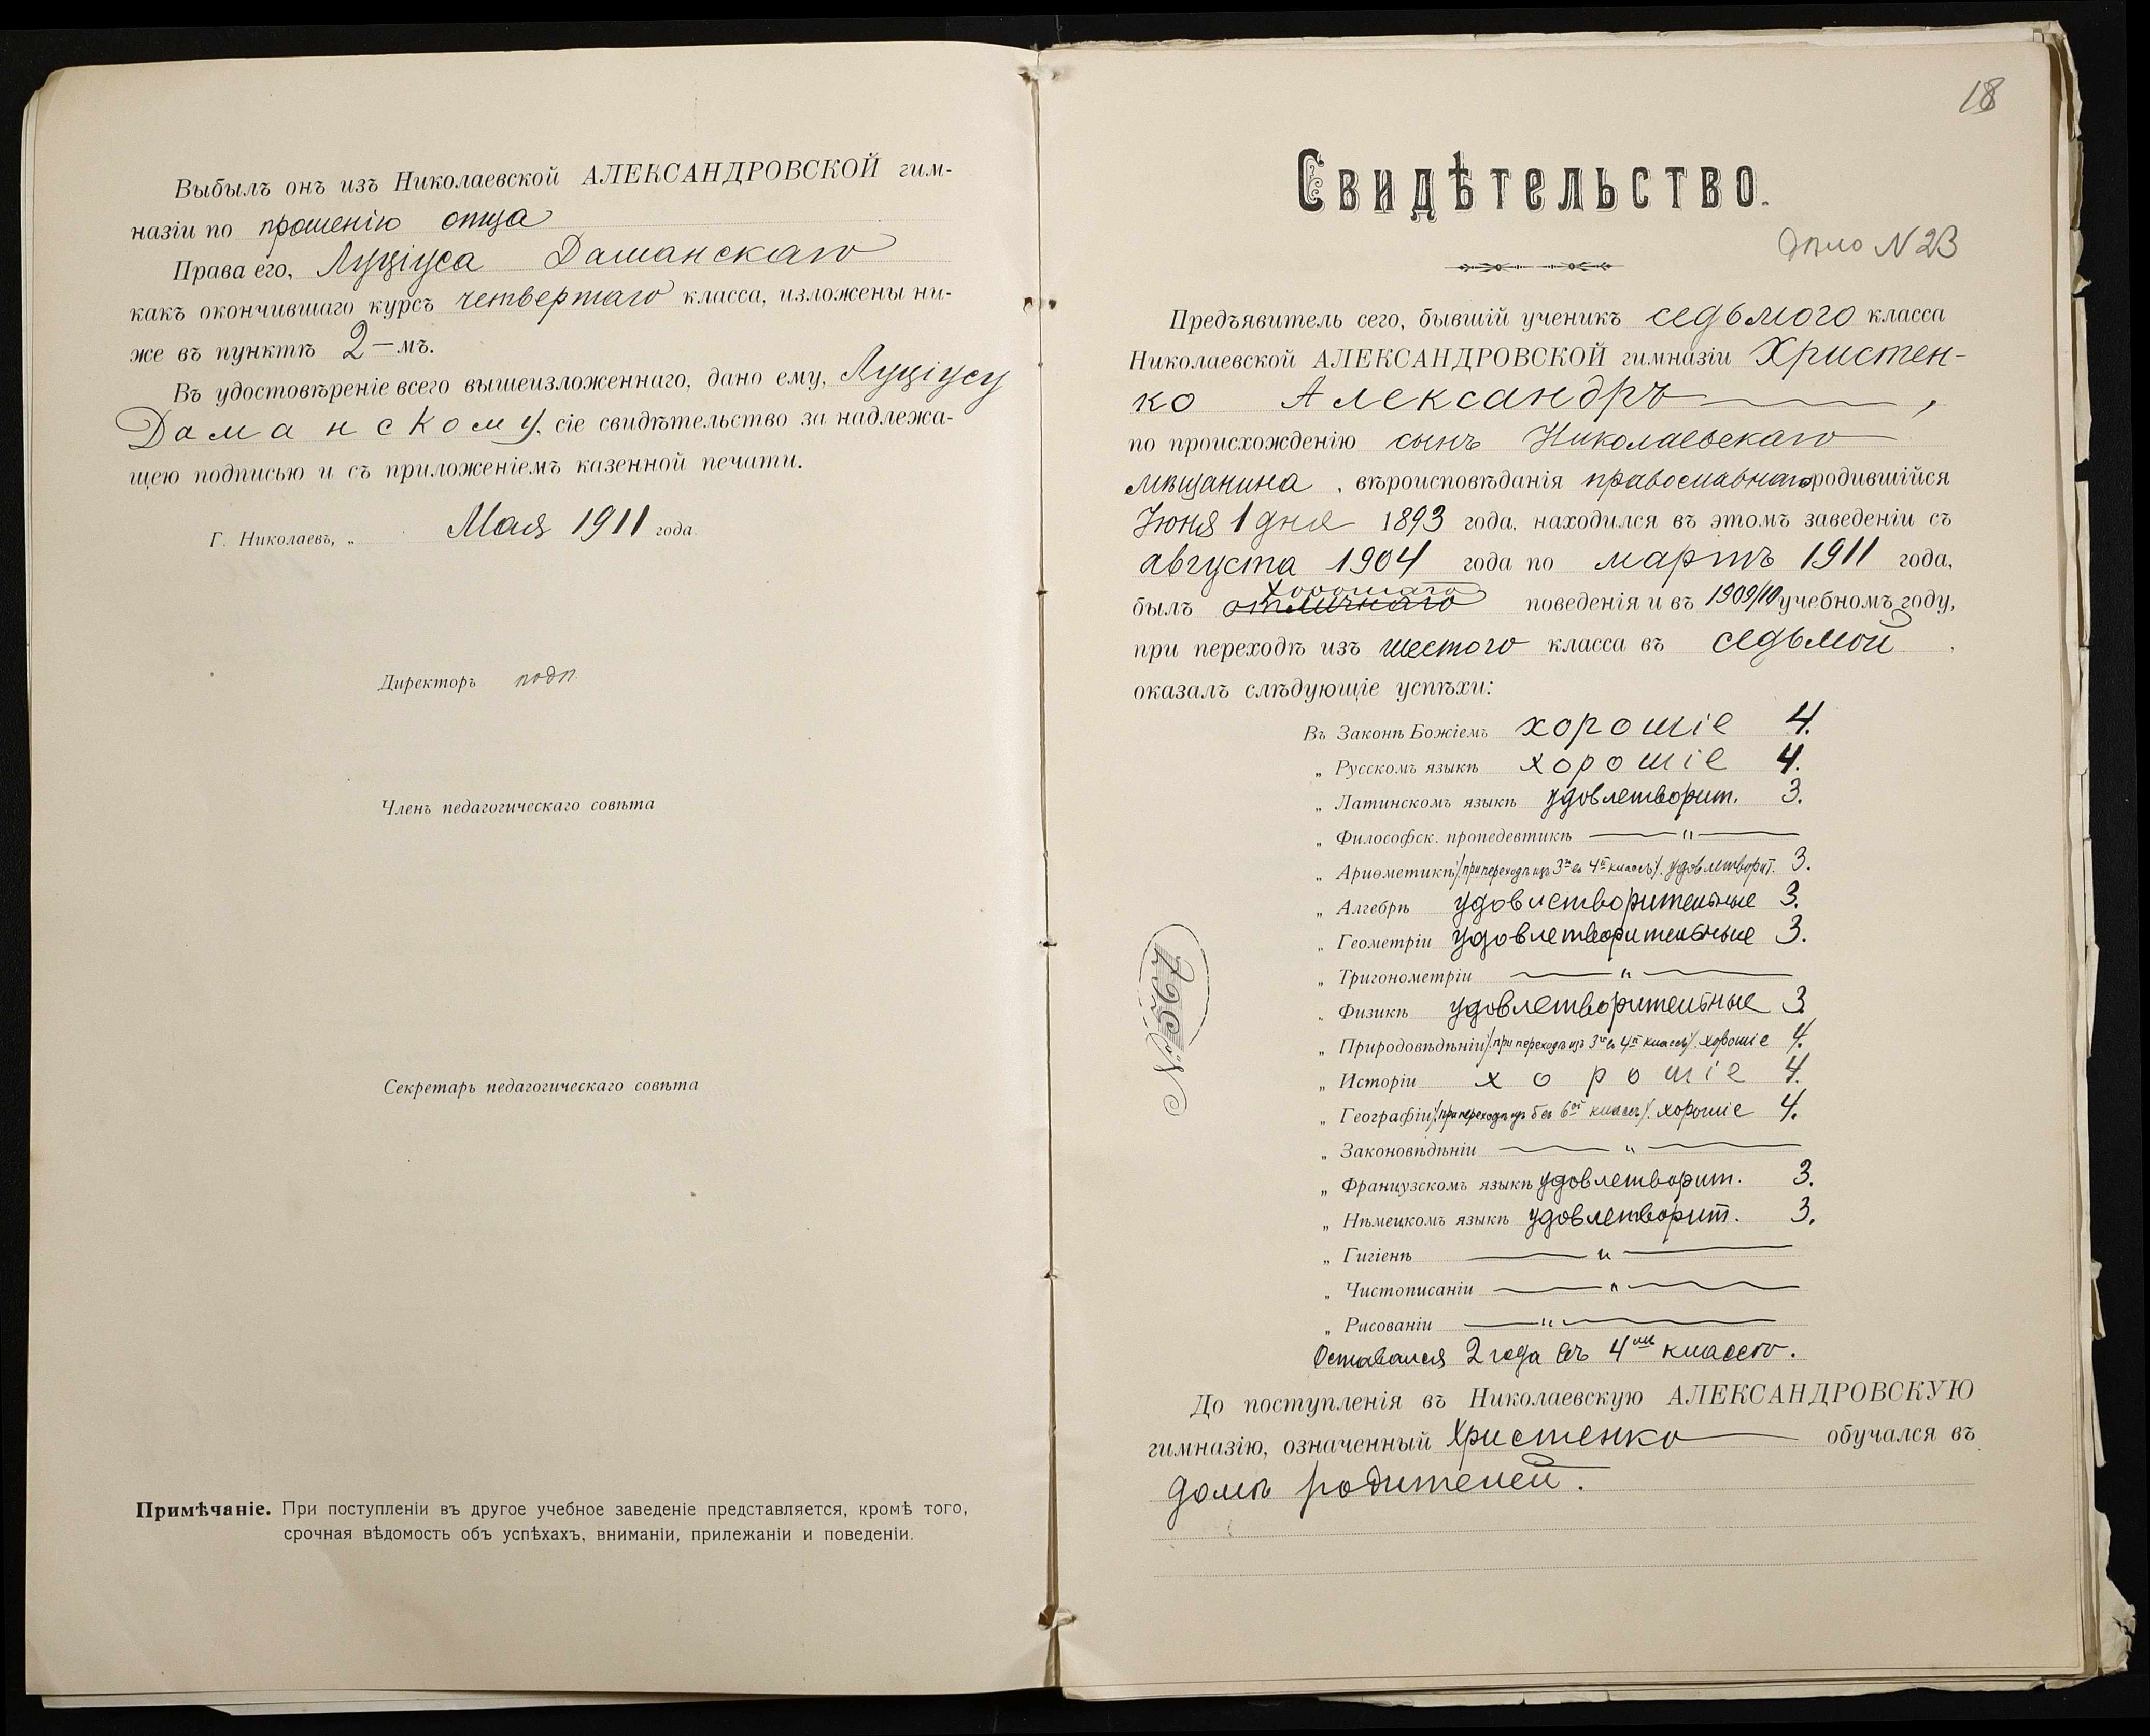 Выбылъ онъ изъ Николаевской АЛЕКСАНДРОВСКОЙ гим-
назіи по прошенію отца
Права его, Луціуса Даманскаго
какъ окончившаго курсъ четвертаго класса, изложены ни-
же въ пунктѣ 2-мъ.
Въ удостовѣреніе всего вышеизложеннаго, дано ему, Луціусу
Даманскому, сіе свидѣтельство за надлежа-
щею подписью и съ приложеніемъ казенной печати.
Г. Николаевъ, „ Мая 1911 года
Директоръ подп.
Членъ педагогическаго совѣта
Секретарь педагогическаго совѣта
Примѣчаніе. При поступленіи въ другое учебное заведеніе представляется, кромѣ того,
срочная вѣдомость объ успѣхахъ, вниманіи, прилежаніи и поведеніи.
18
Свидѣтельство.
Дѣло N 23
Предъявитель сего, бывшій ученикъ седьмого класса
Николаевской АЛЕКСАНДРОВСКОЙ гимназіи Христен-
ко Александръ,
по происхожденію сынъ Николаевскаго
мѣщанина, вѣроисповѣданія православнаго родившійся
Іюня 1 дня 1893 года, находился въ этомъ заведеніи съ
августа 1904 года по мартъ 1911 года,
хорошаго
былъ отличнаго поведенія и въ 1909/10 учебномъ году,
при переходѣ изъ шестого класса въ седьмой,
оказалъ слѣдующіе успѣхи:
Въ Законѣ Божіемъ хорошіе 4.
„ Русскомъ языкѣ хорошіе 4.
„ Латинскомъ языкѣ удовлетворит. 3.
„ Философск. пропедевтикѣ — „ —
„ Ариѳметикѣ /при переходѣ изъ 3го въ 4й классъ/. удовлетворит. 3.
„ Алгебрѣ удовлетворительные 3.
„ Геометріи удовлетворительные 3.
„ Тригонометріи — „ —
„ Физикѣ удовлетворительные 3
„ Природовѣдѣніи /при переходѣ изъ 3го въ 4й классъ/. хорошіе 4.
„ Исторіи хорошіе 4.
„ Географіи /при переходѣ изъ 5 въ 6ой классъ/. хорошіе 4.
„ Законовѣдѣніи — „ —
„ Французскомъ языкѣ удовлетворит. 3.
„ Нѣмецкомъ языкѣ удовлетворит. 3.
„ Гигіенѣ — „ —
„ Чистописаніи — „ —
„ Рисованіи — „ —
Оставался 2 года въ 4омъ классѣ.
До поступленія въ Николаевскую АЛЕКСАНДРОВСКУЮ
гимназію, означенный Христенко обучался въ
домѣ родителей.